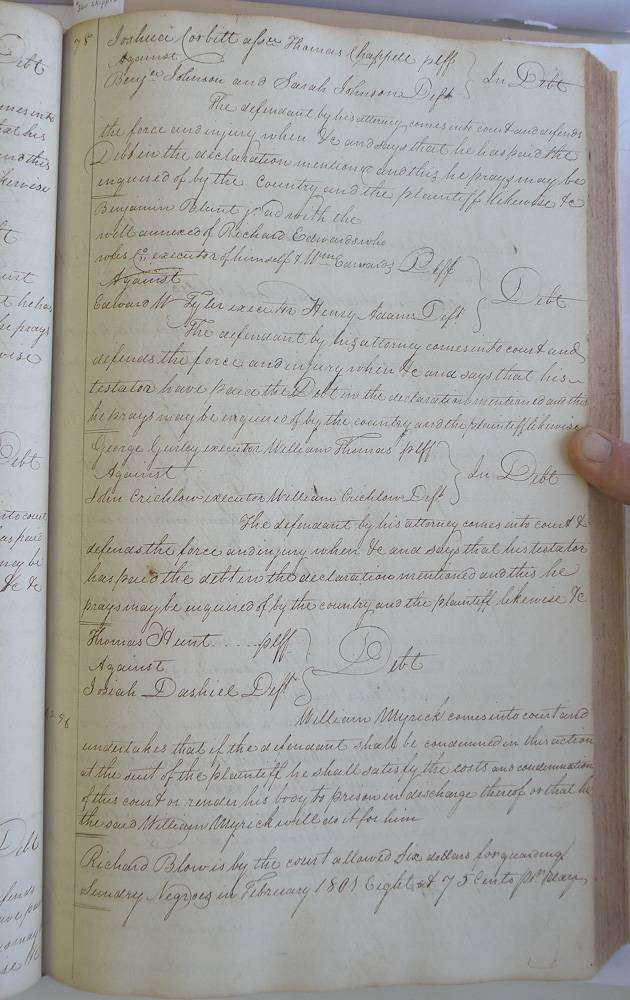 78 Joshua Corbitt assee Thomas Chappell plff
Against
Benjn Johnson and Sarah Johnson Deft
In Debt
The defendant by his attorney comes into court and defends
the force and injury when &c and says that he has paid the
Debt in the declaration mention and this he prays may be
inquired of by the Country and the plaintiff likewise &c
Benjamin Blunt ad with the
will annexed of Richard Edwards who
was executor of himself & Wm Edwards Plff
Against
Edward W Tyler executor Henry Adams Deft
Debt
The defendant by his attorney comes into court and
defends the force and injury when &c and says that his
testator have paid the Debt in the declaration mentioned and this
he prays may be enquired of by the country and the plaintiff likewise
George Gurley executor William Thomas plff
Against
John Crichlow executor William Crichlow Deft
In Debt
The defendant by his attorney comes into court &
defends the force and injury when &c and says that his testator
has paid the debt in the declaration mentioned and this he
prays may be enquired of by the country and the plaintiff likewise &c
Thomas Hunt ...... plff
Against
Josiah Dashiel Deft
Debt
William Myrick comes into court and
undertakes that if the defendant shall be condemned in this action
at the suit of the plaintiff he shall satisfy the costs and condemnation
of this court or render his body to prison in discharge thereof or that he
the said William Myrick will do it for him
Richard Blow is by the court allowed Six dollars for guarding
Sundry Negroes in February 1801 Eight at 75 Cents pr day